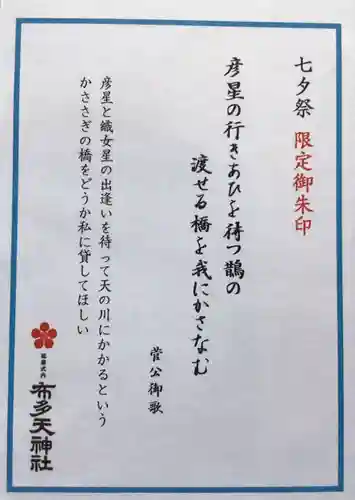 七夕祭 限定御朱印
彦星の行きあひを待つ鵲の
渡せる橋を我にかさなむ
菅公御歌
彦星と織女星の出逢いを待って天の川にかかるという
かささぎの橋をどうか私に貸してほしい
延喜式内
布多天神社